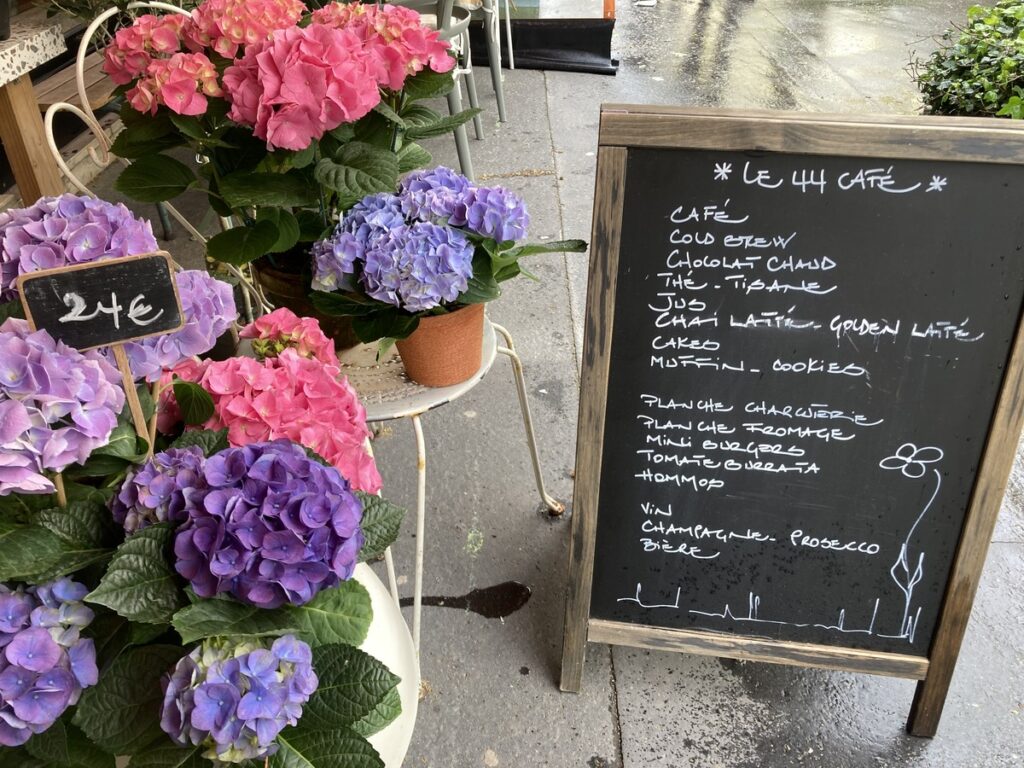 24€
* LE 44 CAFÉ *
CAFÉ
COLD BREW
CHOCOLAT CHAUD
THÉ - TISANE
JUS
CHAI LATTÉ - GOLDEN LATTÉ
CAKES
MUFFIN - COOKIES
PLANCHE CHARCUTERIE
PLANCHE FROMAGE
MINI BURGERS
TOMATE BURRATA
HOMMOS
VIN
CHAMPAGNE - PROSECCO
BIÈRE